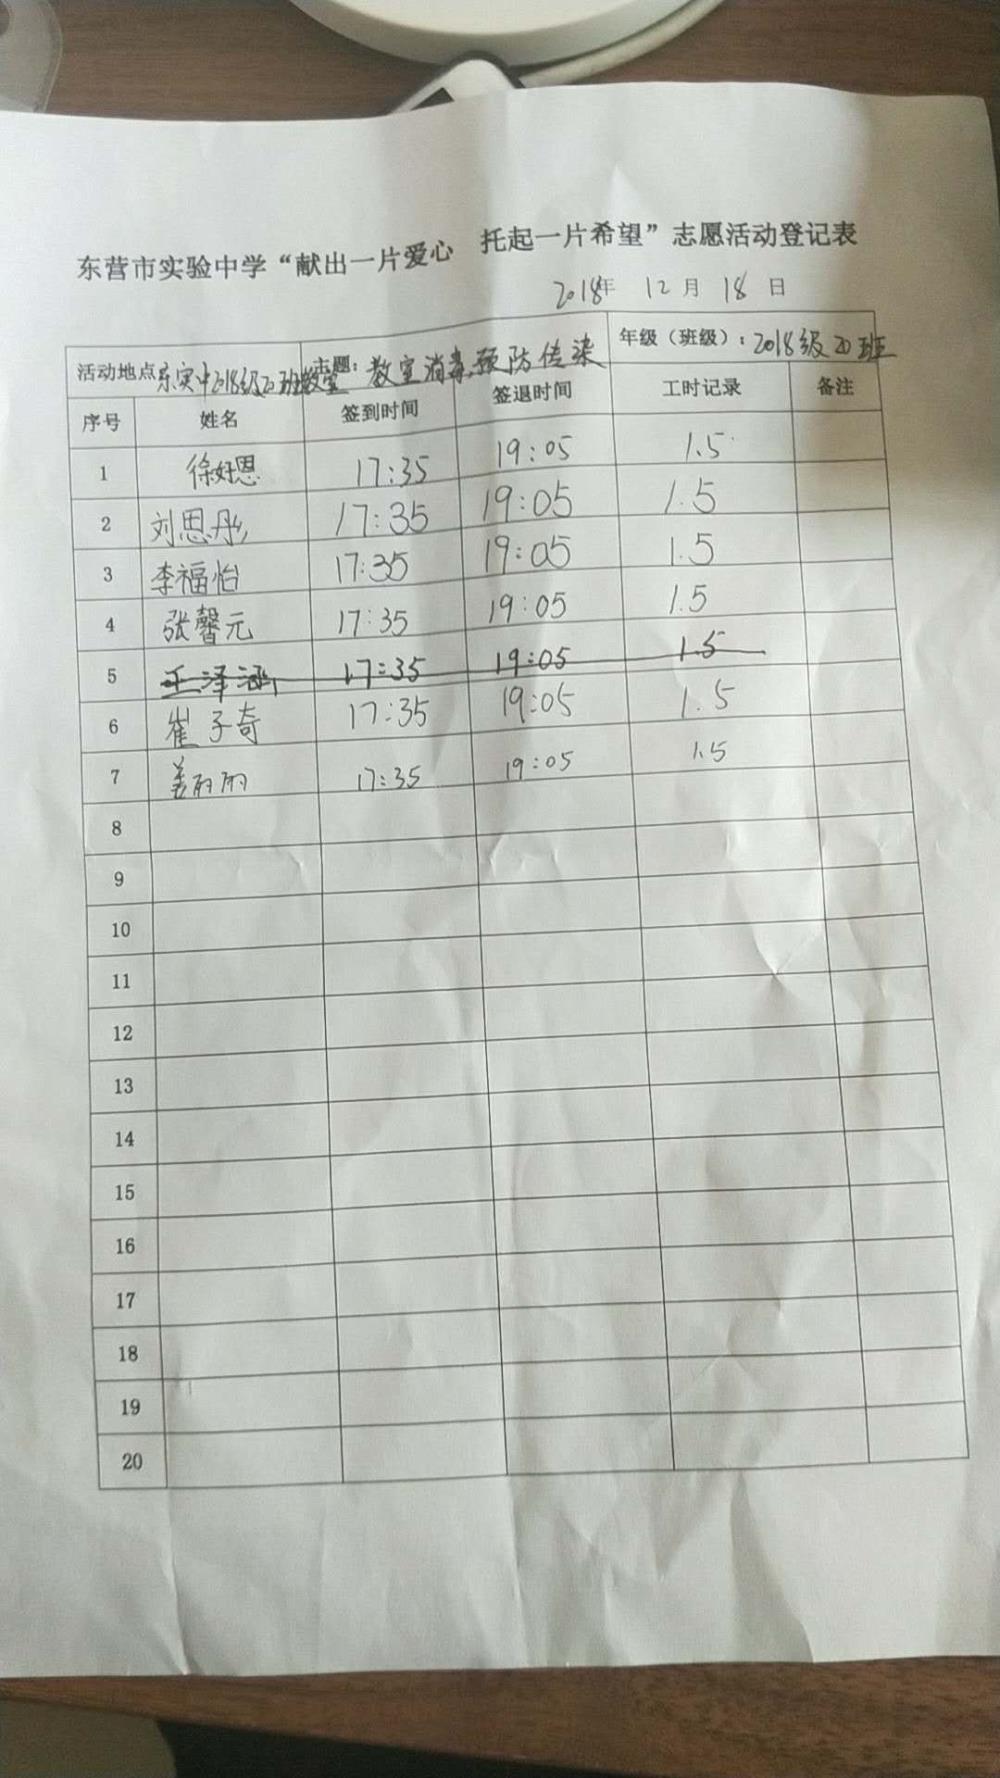 东营市实验中学“献出一片爱心 托起一片希望”志愿活动登记表
2018年 12月 18日
活动地点 东实中2018级20班教室 主题: 教室消毒,预防传染 年级（班级）: 2018级20班
序号 姓名 签到时间 签退时间 工时记录 备注
1 徐好恩 17:35 19:05 1.5
2 刘思彤 17:35 19:05 1.5
3 李福怡 17:35 19:05 1.5
4 张馨元 17:35 19:05 1.5
5 王泽涵 17:35 19:05 1.5
6 崔子奇 17:35 19:05 1.5
7 姜丽丽 17:35 19:05 1.5
8
9
10
11
12
13
14
15
16
17
18
19
20